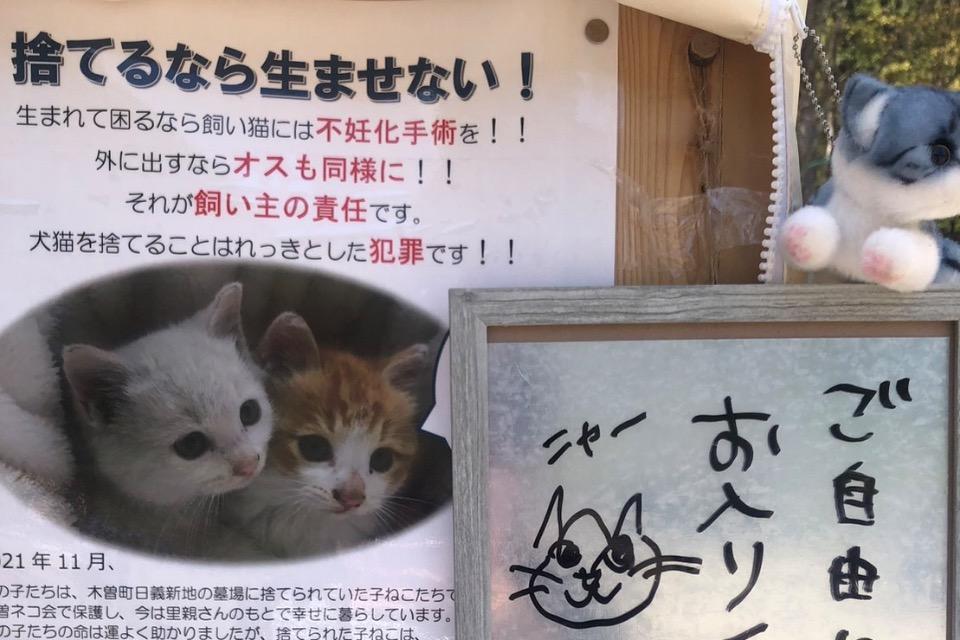 捨てるなら生ませない！
生まれて困るなら飼い猫には不妊化手術を！！
外に出すならオスも同様に！！
それが飼い主の責任です。
犬猫を捨てることはれっきとした犯罪です！！
21年11月、
の子たちは、木曽町日義新地の墓場に捨てられていた子ねこたちで
曽ネコ会で保護し、今は里親さんのもとで幸せに暮らしています。
の子たちの命は運よく助かりましたが、捨てられた子ねこは、
ご自由に
お入り
ニャー